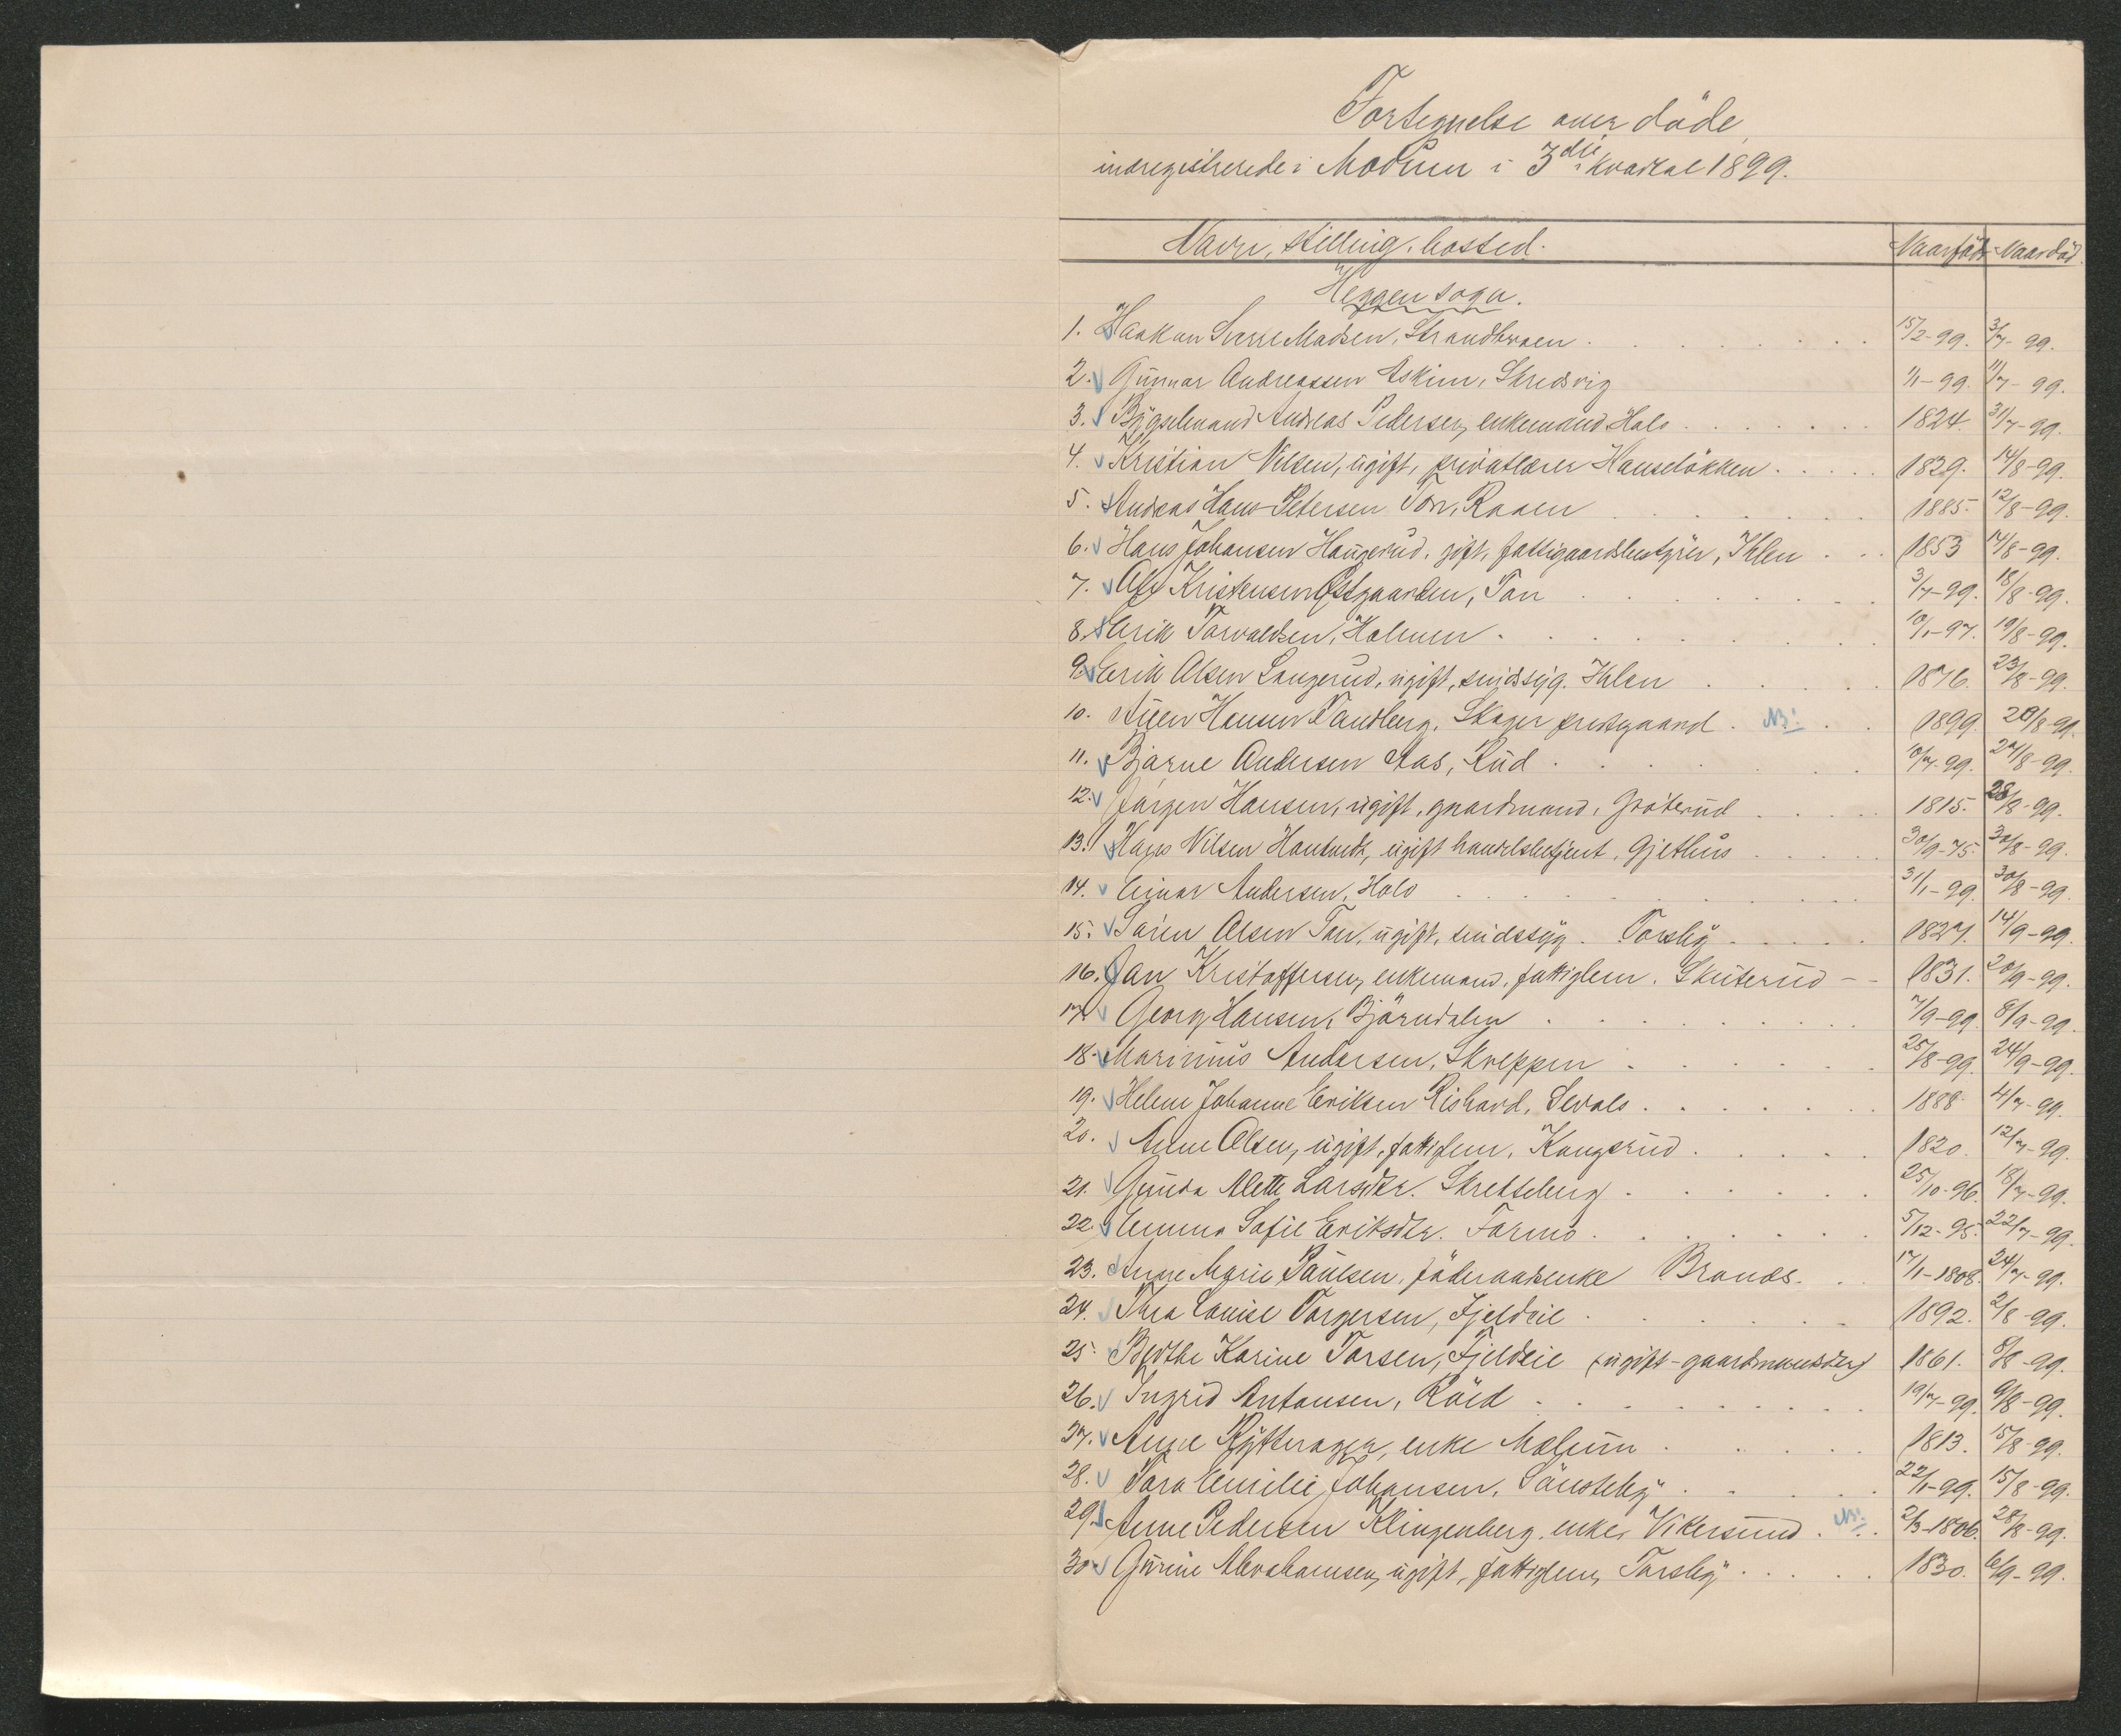 Fortegnelse over döde,
indregistrerede i Modum i 3die kvartal 1899.
Navn, stilling, bosted. Naar född Naar död.
Heggen sogn.
1. Haakon Sverre Madsen, Strandbraaen 15/2-99. 3/7-99.
2. Gunnar Andreassen Askim, Skredsvig 1/1-99. 11/7-99.
3. Bygselmand Andreas Pedersen, enkemand Hals 1824. 31/7-99.
4. Kristian Nilsen, ugift, privatlærer Hanselökken 1829. 14/8-99.
5. Andreas Hans Petersen Ton, Raaen 1885. 12/8-99.
6. Hans Johansen Haugerud, gift, fattigaardsbestyrer, Ihlen 1853 14/8-99.
7. Alf Kristensen Østgaarden, Ton 3/7-99. 18/8-99.
8. Erik Torvaldsen, Holmen 10/1-97. 19/8-99.
9. Erik Olsen Langerud, ugift, sindssyg. Ihlen 1876. 23/8-99.
10. Hansen Sandberg. prestgaard. NB: 1899. 20/8-99.
11. Bjarne Andersen Aas, Rud 10/7-99. 27/8-99.
12. Jörgen Hansen, ugift, gaardmand, Gröterud 1815. 28/8-99.
13. Hans Nilsen ugift handelsbetjent, Gjethus 30/9-75. 30/8-99.
14. Einar Andersen, Hals 31/1-99. 30/8-99.
15. Sören Olsen Ton, ugift, sindssyg. Torsby 1827. 14/9-99.
16. Jan Kristoffersen, enkemand, fattiglem. Skuterud -- 1831. 20/9-99.
17. Georg Hansen, Björndalen 7/9-99. 8/9-99.
18. Marinius Andersen, Skreppen 25/8-99. 24/9-99.
19. Helene Johanne Eriksen Rishavd, Sevals 1888 4/7-99.
20. Anne Olsen, ugift, fattiglem, Kongsrud 1820. 12/7-99.
21. Gunda Alette Larsdtr. Skretteberg 25/10-96. 18/7-99.
22. Emma Sofie Eriksdtr. Formo 5/12-95. 22/7-99.
23. Anne Marie Paulsen, föderaadsenke Brands. 17/1-1808. 24/7-99.
24. Thea Louise Torgersen, Fjeldeie 1892. 2/8-99.
25. Berthe Karine Torsen, Fjeldeie (ugift-gaardmansdtr) 1861. 8/8-99.
26. Ingrid Antonsen, Röed 19/7-99. 9/8-99.
27. Anne Rytterager, enke Mælum 1813. 15/8-99.
28. Tora Emilie Johansen, Sönsteby 22/1-99. 15/8-99.
29. Anne Pedersen Klingenberg, enke, Vikersund. NB: 2/3-1806. 28/8-99.
30. Gurine Abrahamsen, ugift, fattiglem, Torsby 1830. 6/9-99.